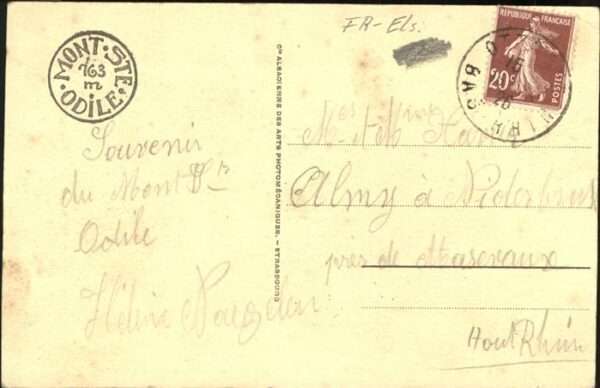 FR-Els.
MONT·STE·ODILE·
763
m
RÉPUBLIQUE FRANÇAISE
20c
POSTES
BAS RHIN
Souvenir
du Mont Ste
Odile
Hélène
Cie ALSACIENNE DES ARTS PHOTOMÉCANIQUES. - STRASBOURG
M. et M
Almy à Niderbruck
près de Masevaux
Haut Rhin